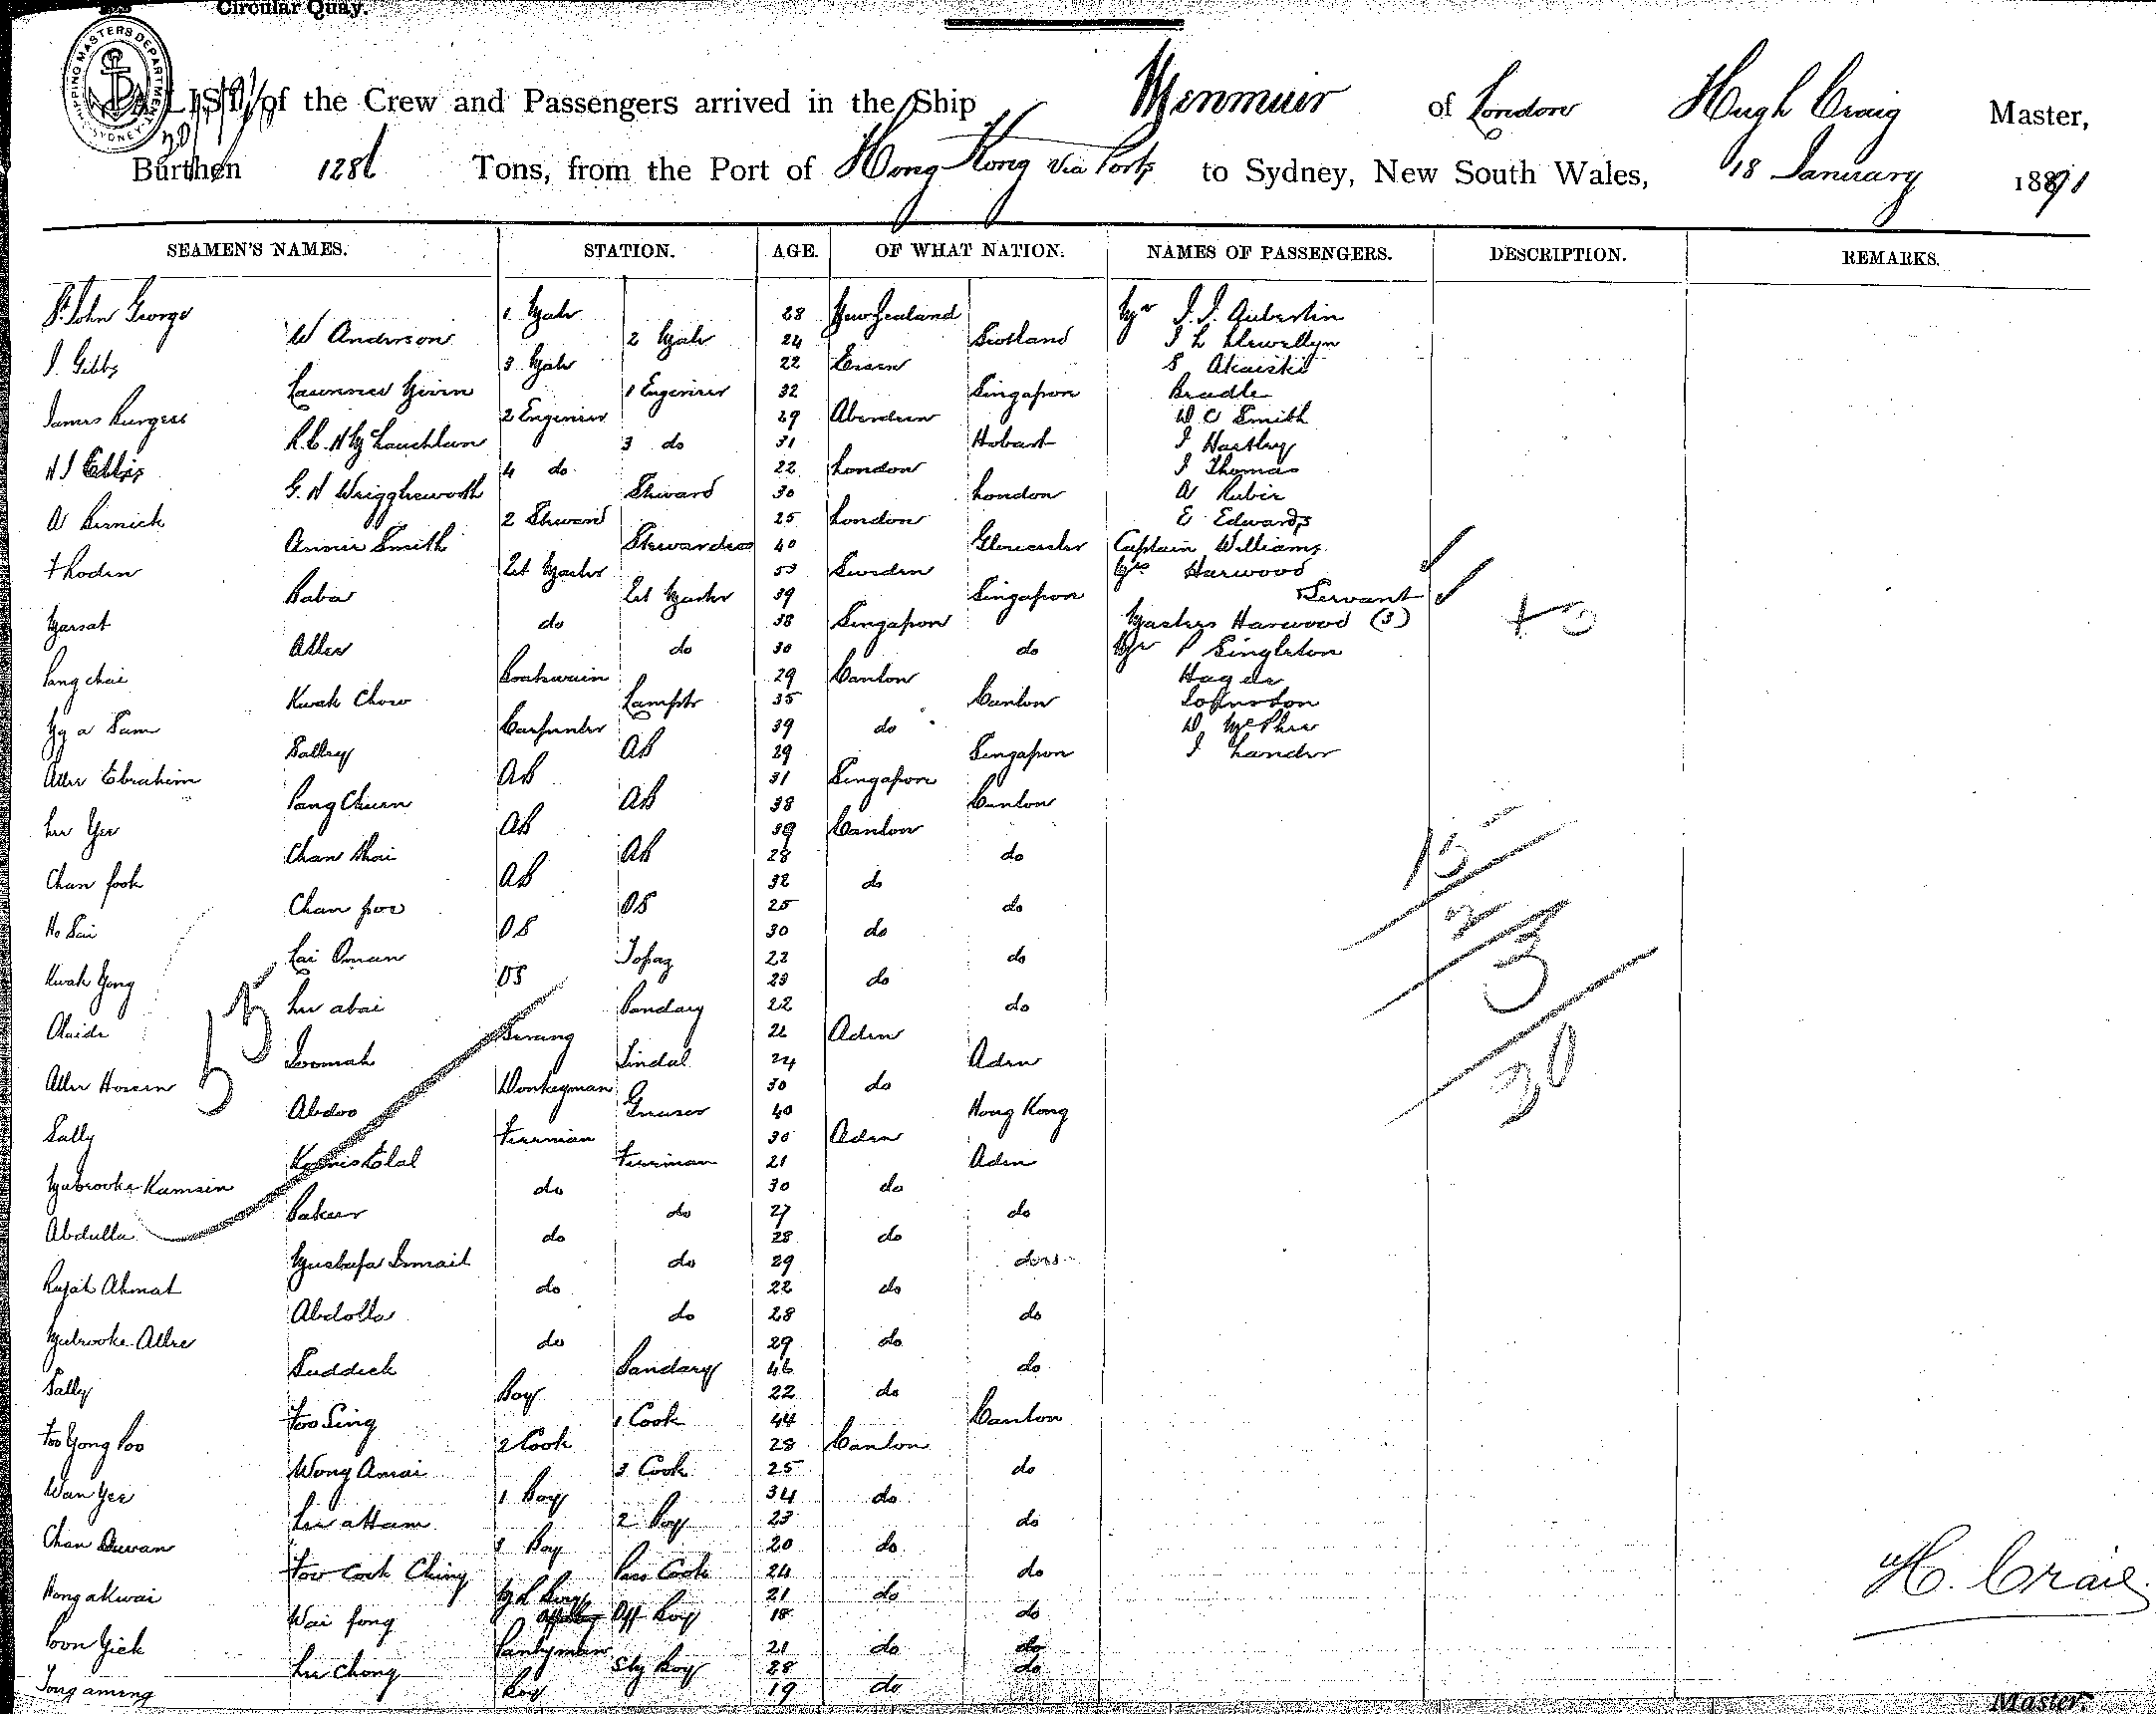 Circular Quay.
SHIPPING MASTERS DEPARTMENT SYDNEY
A LIST of the Crew and Passengers arrived in the Ship Menmuir of London Hugh Craig Master,
Burthen 1286 Tons, from the Port of Hong Kong via Ports to Sydney, New South Wales, 18 January 1891
SEAMEN'S NAMES. STATION. AGE. OF WHAT NATION. NAMES OF PASSENGERS. DESCRIPTION. REMARKS.
St John George 1 Mate 28 New Zealand Mr J. J. Aubertin
W Anderson 2 Mate 24 Scotland J L Llewellyn
J. Gibbs 3 Mate 22 S Akaiski
Lawrence Givin 1 Engineer 32 Singapore Beadle
James Burgess 2 Engineer 29 Aberdeen W C Smith
R. C. McLauchlan 3 do 31 Hobart J Hartley
N J Ellis 4 do 22 London J Thomas
G. H Wrigglesworth Steward 30 London A Rubie
A Birnick 2 Steward 25 London E Edwards
Annie Smith Stewardess 40 Gloucester Captain Williams
Thoden Qr Master 53 Sweden Mrs Harwood
Baba Qr Master 39 Singapore Servant
Marsat do 38 Singapore Masters Harwood (3)
Allee do 30 do Mr P Singleton
Pang chai Boatswain 29 Canton Hagen
Kwok Chow Lamps 35 Canton Johnston
Ng a Sam Carpenter 39 do D McPhee
Salley AB 29 Singapore J Lander
Allee Ebrahim AB 31 Singapore
Pang Chuen AB 38 Canton
Lee Yee AB 39 Canton
Chan Thai AB 28 do
Chan fook AB 32 do
Chan poo OS 25 do
Ho Sai OS 30 do
Lai Oman Topaz 22 do
Kwok Yong OS 23 do
Lee abai Pandary 22 do
Obaide Serang 26 Aden
Joomah Tindal 24 Aden
Allee Hosein Donkeyman 30 do
Abdoo Greaser 40 Hong Kong
Sally Fireman 30 Aden
Fireman 21 Aden
Mubrooke Kamsin do 30 do
Baker do 27 do
Abdulla do 28 do
Mustafa Ismail do 29 do
Rajah Ahmat do 22 do
Abdolla do 28 do
Mubrooke Allee do 29 do
Suddick Pandary 46 do
Sally Boy 22 do
Foo Sing 1 Cook 44 Canton
Foo Yong Poo 2 Cook 28 Canton
Wong Amai 3 Cook 25 do
Wan Yee 1 Boy 34 do
Lee a Ham 2 Boy 23 do
Chan 3 Boy 20 do
Fow Cook Ching Pass Cook 24 do
Hong a Kwai 21 do
Wai fong Off Boy 18 do
Poon Yick Pantryman 21 do
Lee Chong Stg Boy 28 do
Tong aming Boy 19 do
55
15
2
3
20
H. Craig
Master.